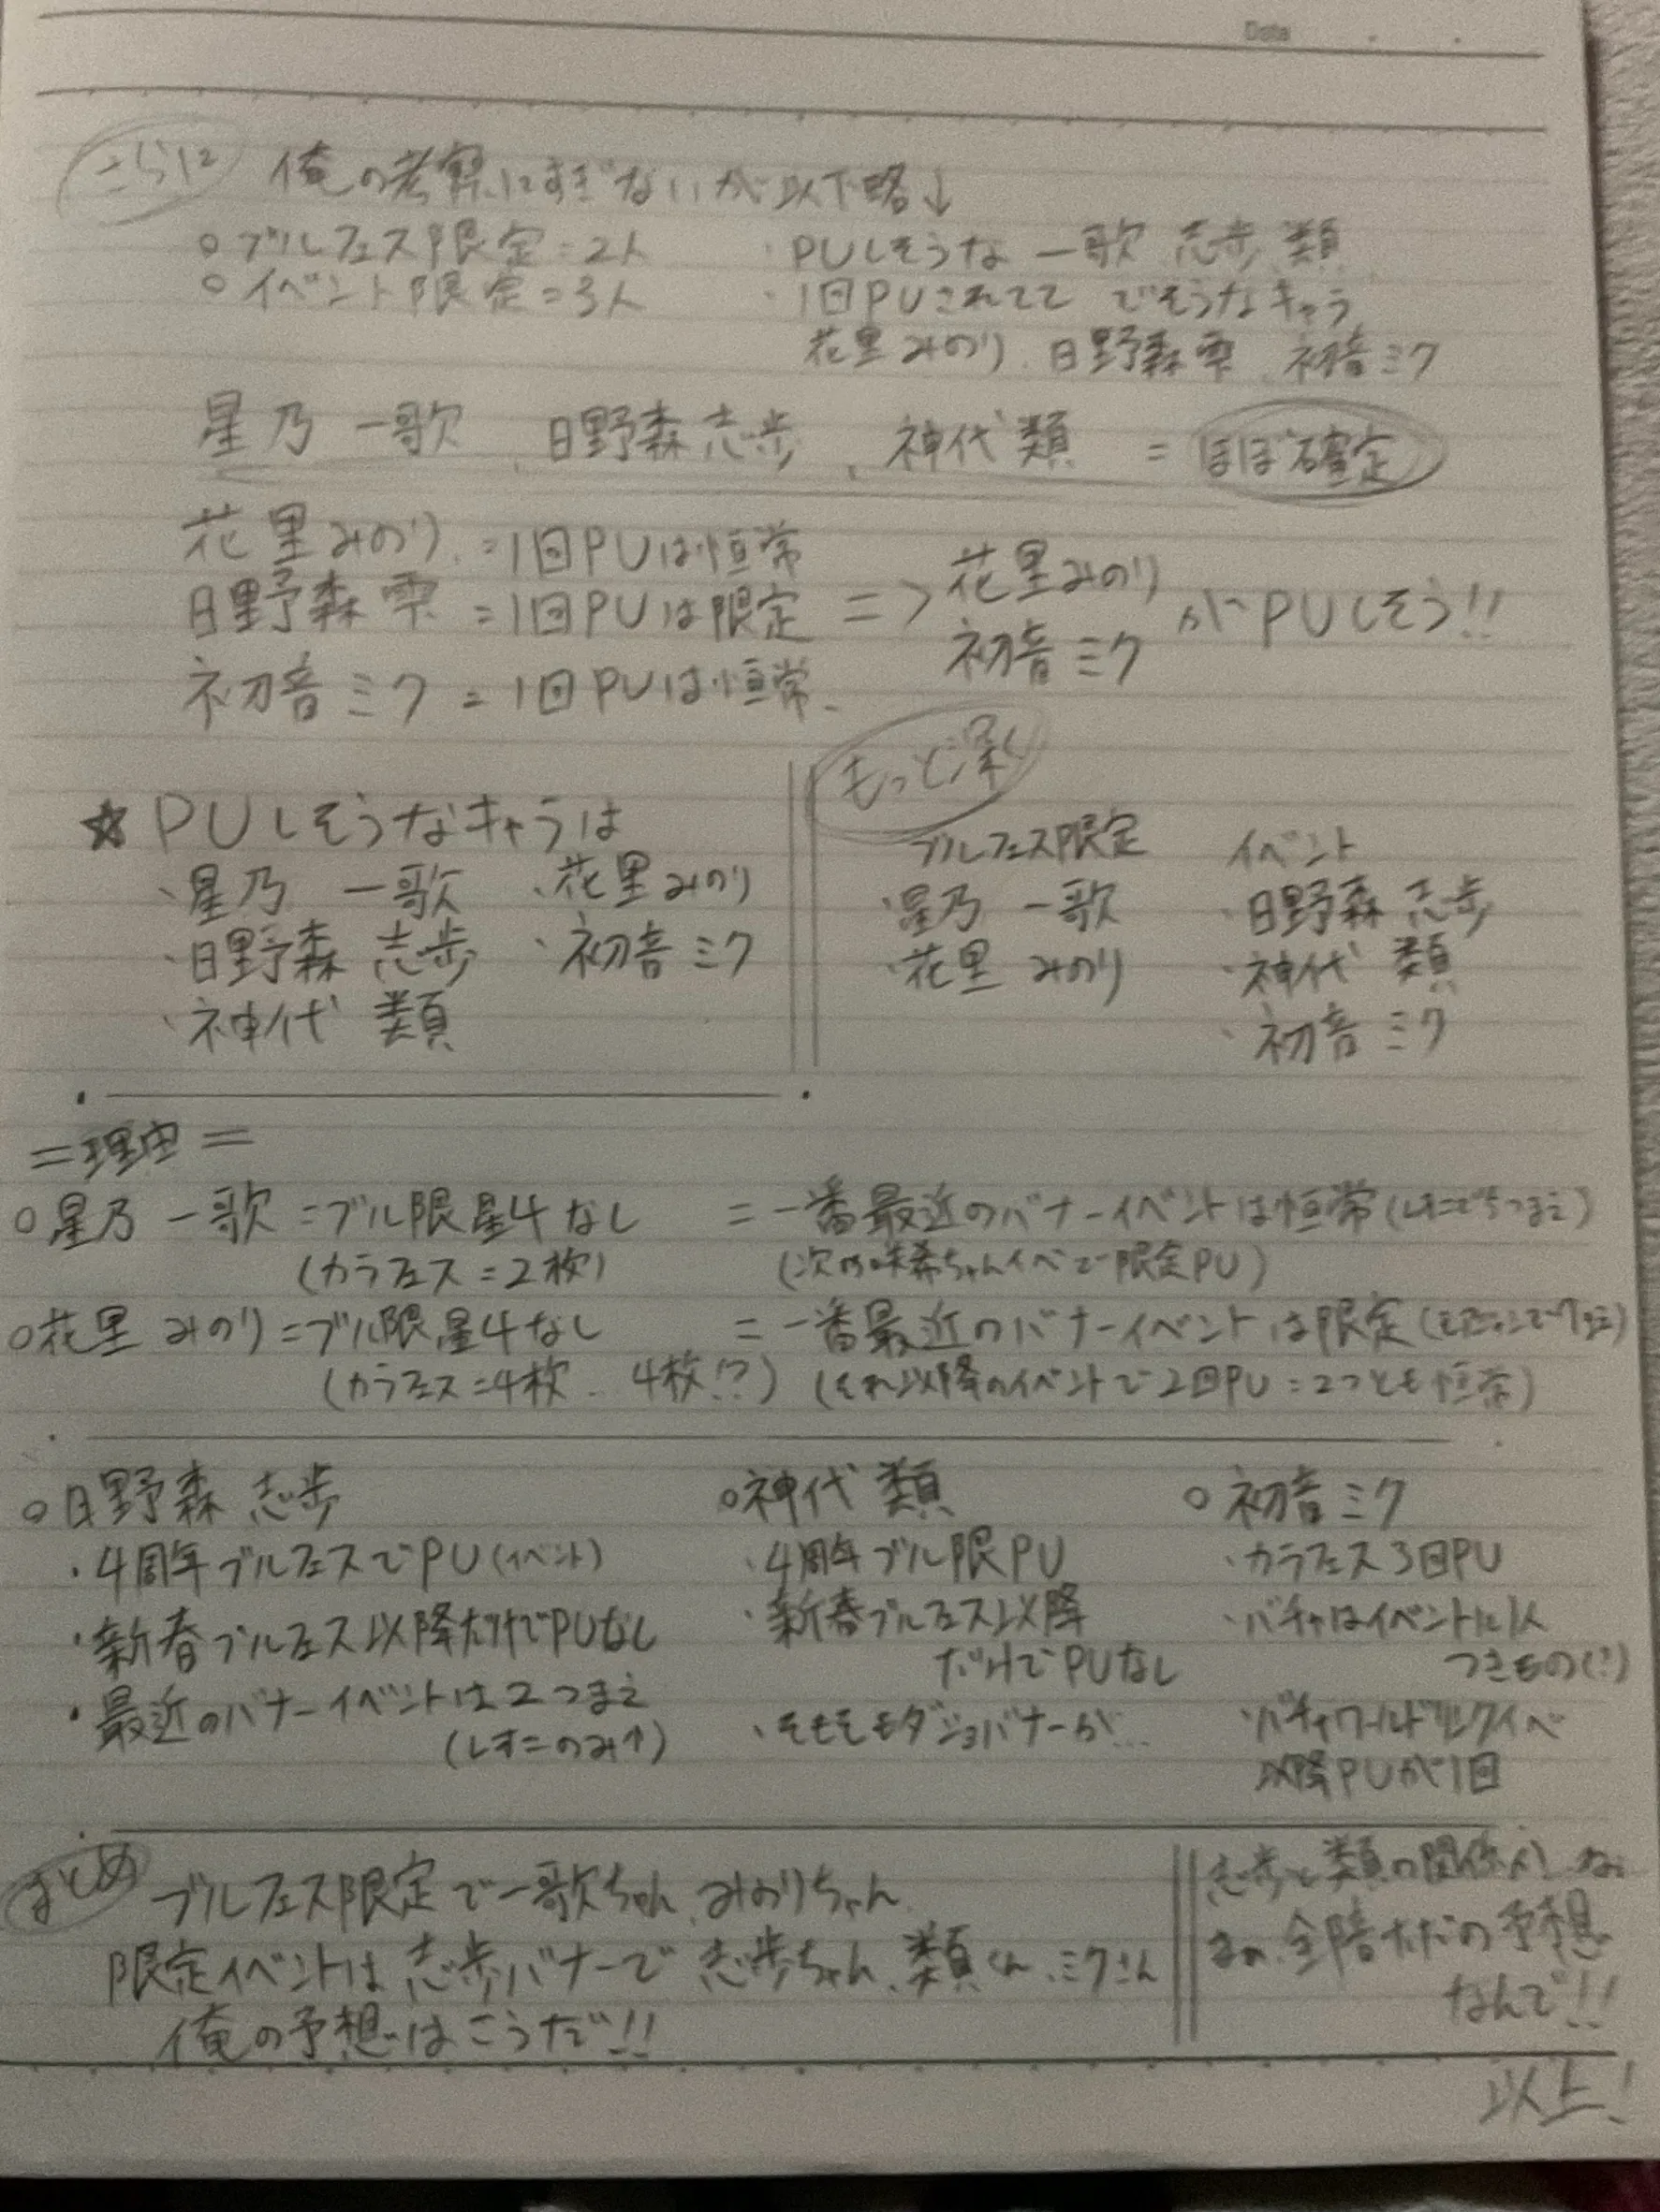 Data
さらに 俺の考察にすぎないが以下略↓
○ブルフェス限定=2人
○イベント限定=3人
・PUしそうな 一歌 志歩 類
・1回PUされてて でそうなキャラ
花里みのり、日野森雫、初音ミク
星乃 一歌、日野森志歩、神代 類 = ほぼ確定
花里みのり =1回PUは恒常
日野森雫 =1回PUは限定
初音ミク =1回PUは恒常
=> 花里みのり
初音ミク
がPUしそう!!
☆PUしそうなキャラは
・星乃 一歌 ・花里みのり
・日野森 志歩 ・初音ミク
・神代 類
もっと深く
ブルフェス限定
・星乃 一歌
・花里 みのり
イベント
・日野森 志歩
・神代 類
・初音ミク
=理由=
○星乃 一歌 =ブル限星4なし =一番最近のバナーイベントは恒常(レオニで5つまえ)
(カラフェス=2枚) (次の咲希ちゃんイベで限定PU)
○花里 みのり=ブル限星4なし =一番最近のバナーイベントは限定
(カラフェス=4枚 4枚!?) (それ以降のイベントで2回PU=2つとも恒常)
○日野森 志歩
・4周年ブルフェスでPU(イベント)
・新春ブルフェス以降だけでPUなし
・最近のバナーイベントは2つまえ
(レオニのみ↑)
○神代 類
・4周年ブル限PU
・新春ブルフェス以降
だけでPUなし
・そもそもダショバナーが…
○初音ミク
・カラフェス3回PU
・バチャはイベントに1人
つきもの(?)
・バチャワールドリンクイベ
以降PUが1回
まとめ ブルフェス限定で一歌ちゃん、みのりちゃん
限定イベントは志歩バナーで志歩ちゃん、類くん、ミクさん
俺の予想はこうだ!!
志歩と類の関係
まあ、全部ただの予想
なんで!!
以上!